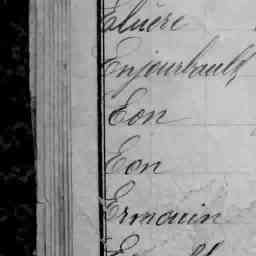 Eluère
Enjourbault
Eon
Eon
Ermouin